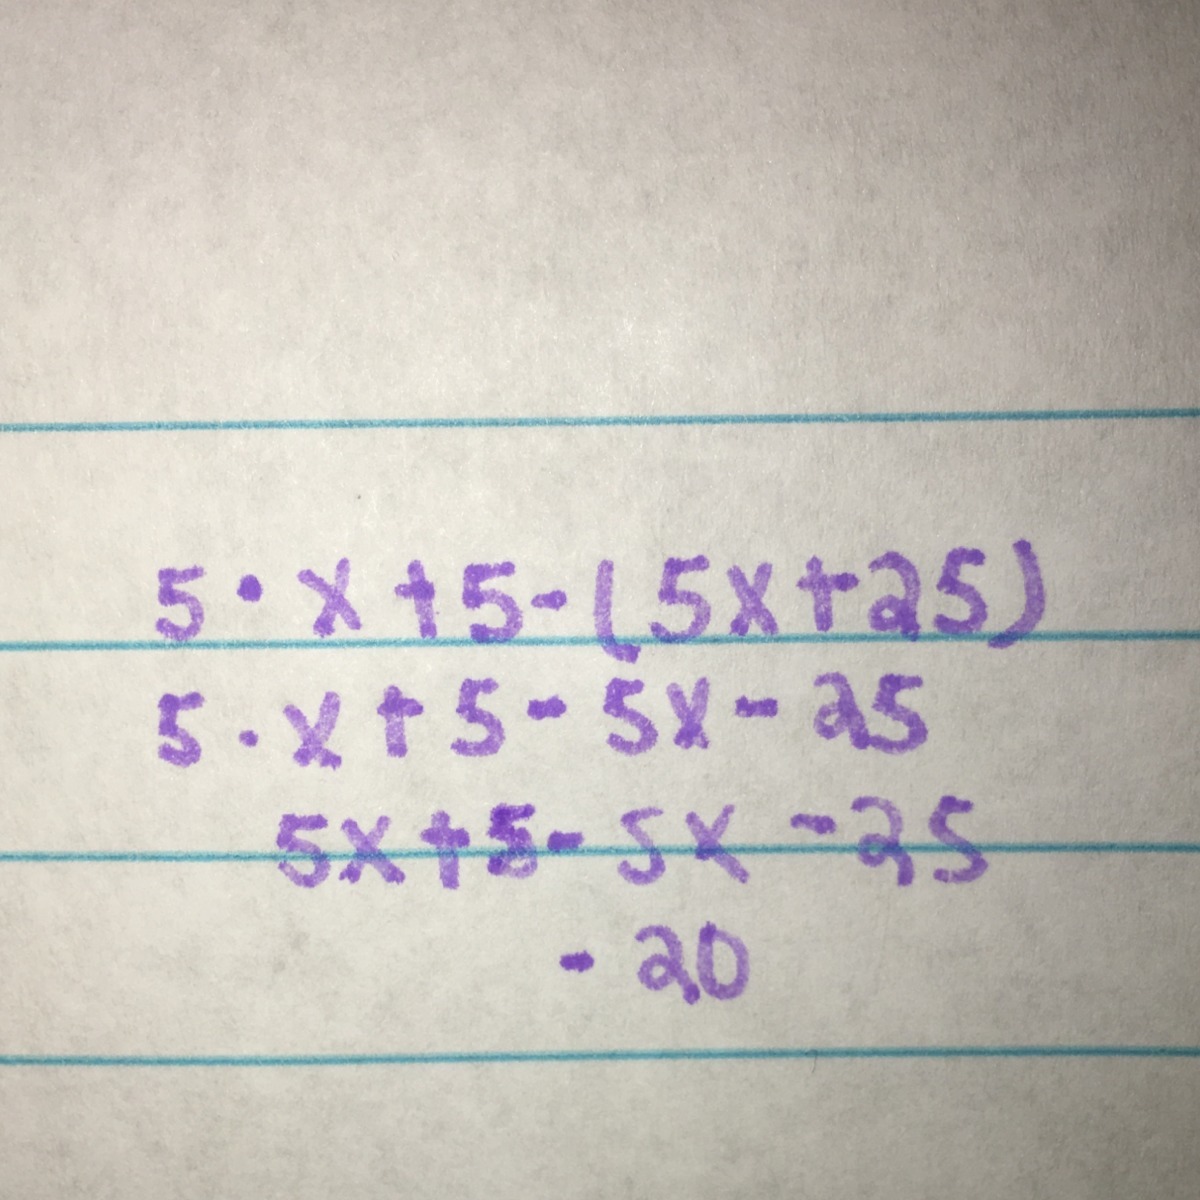 5 · x + 5 - (5x + 25)
5 · x + 5 - 5x - 25
5x + 5 - 5x - 25
- 20